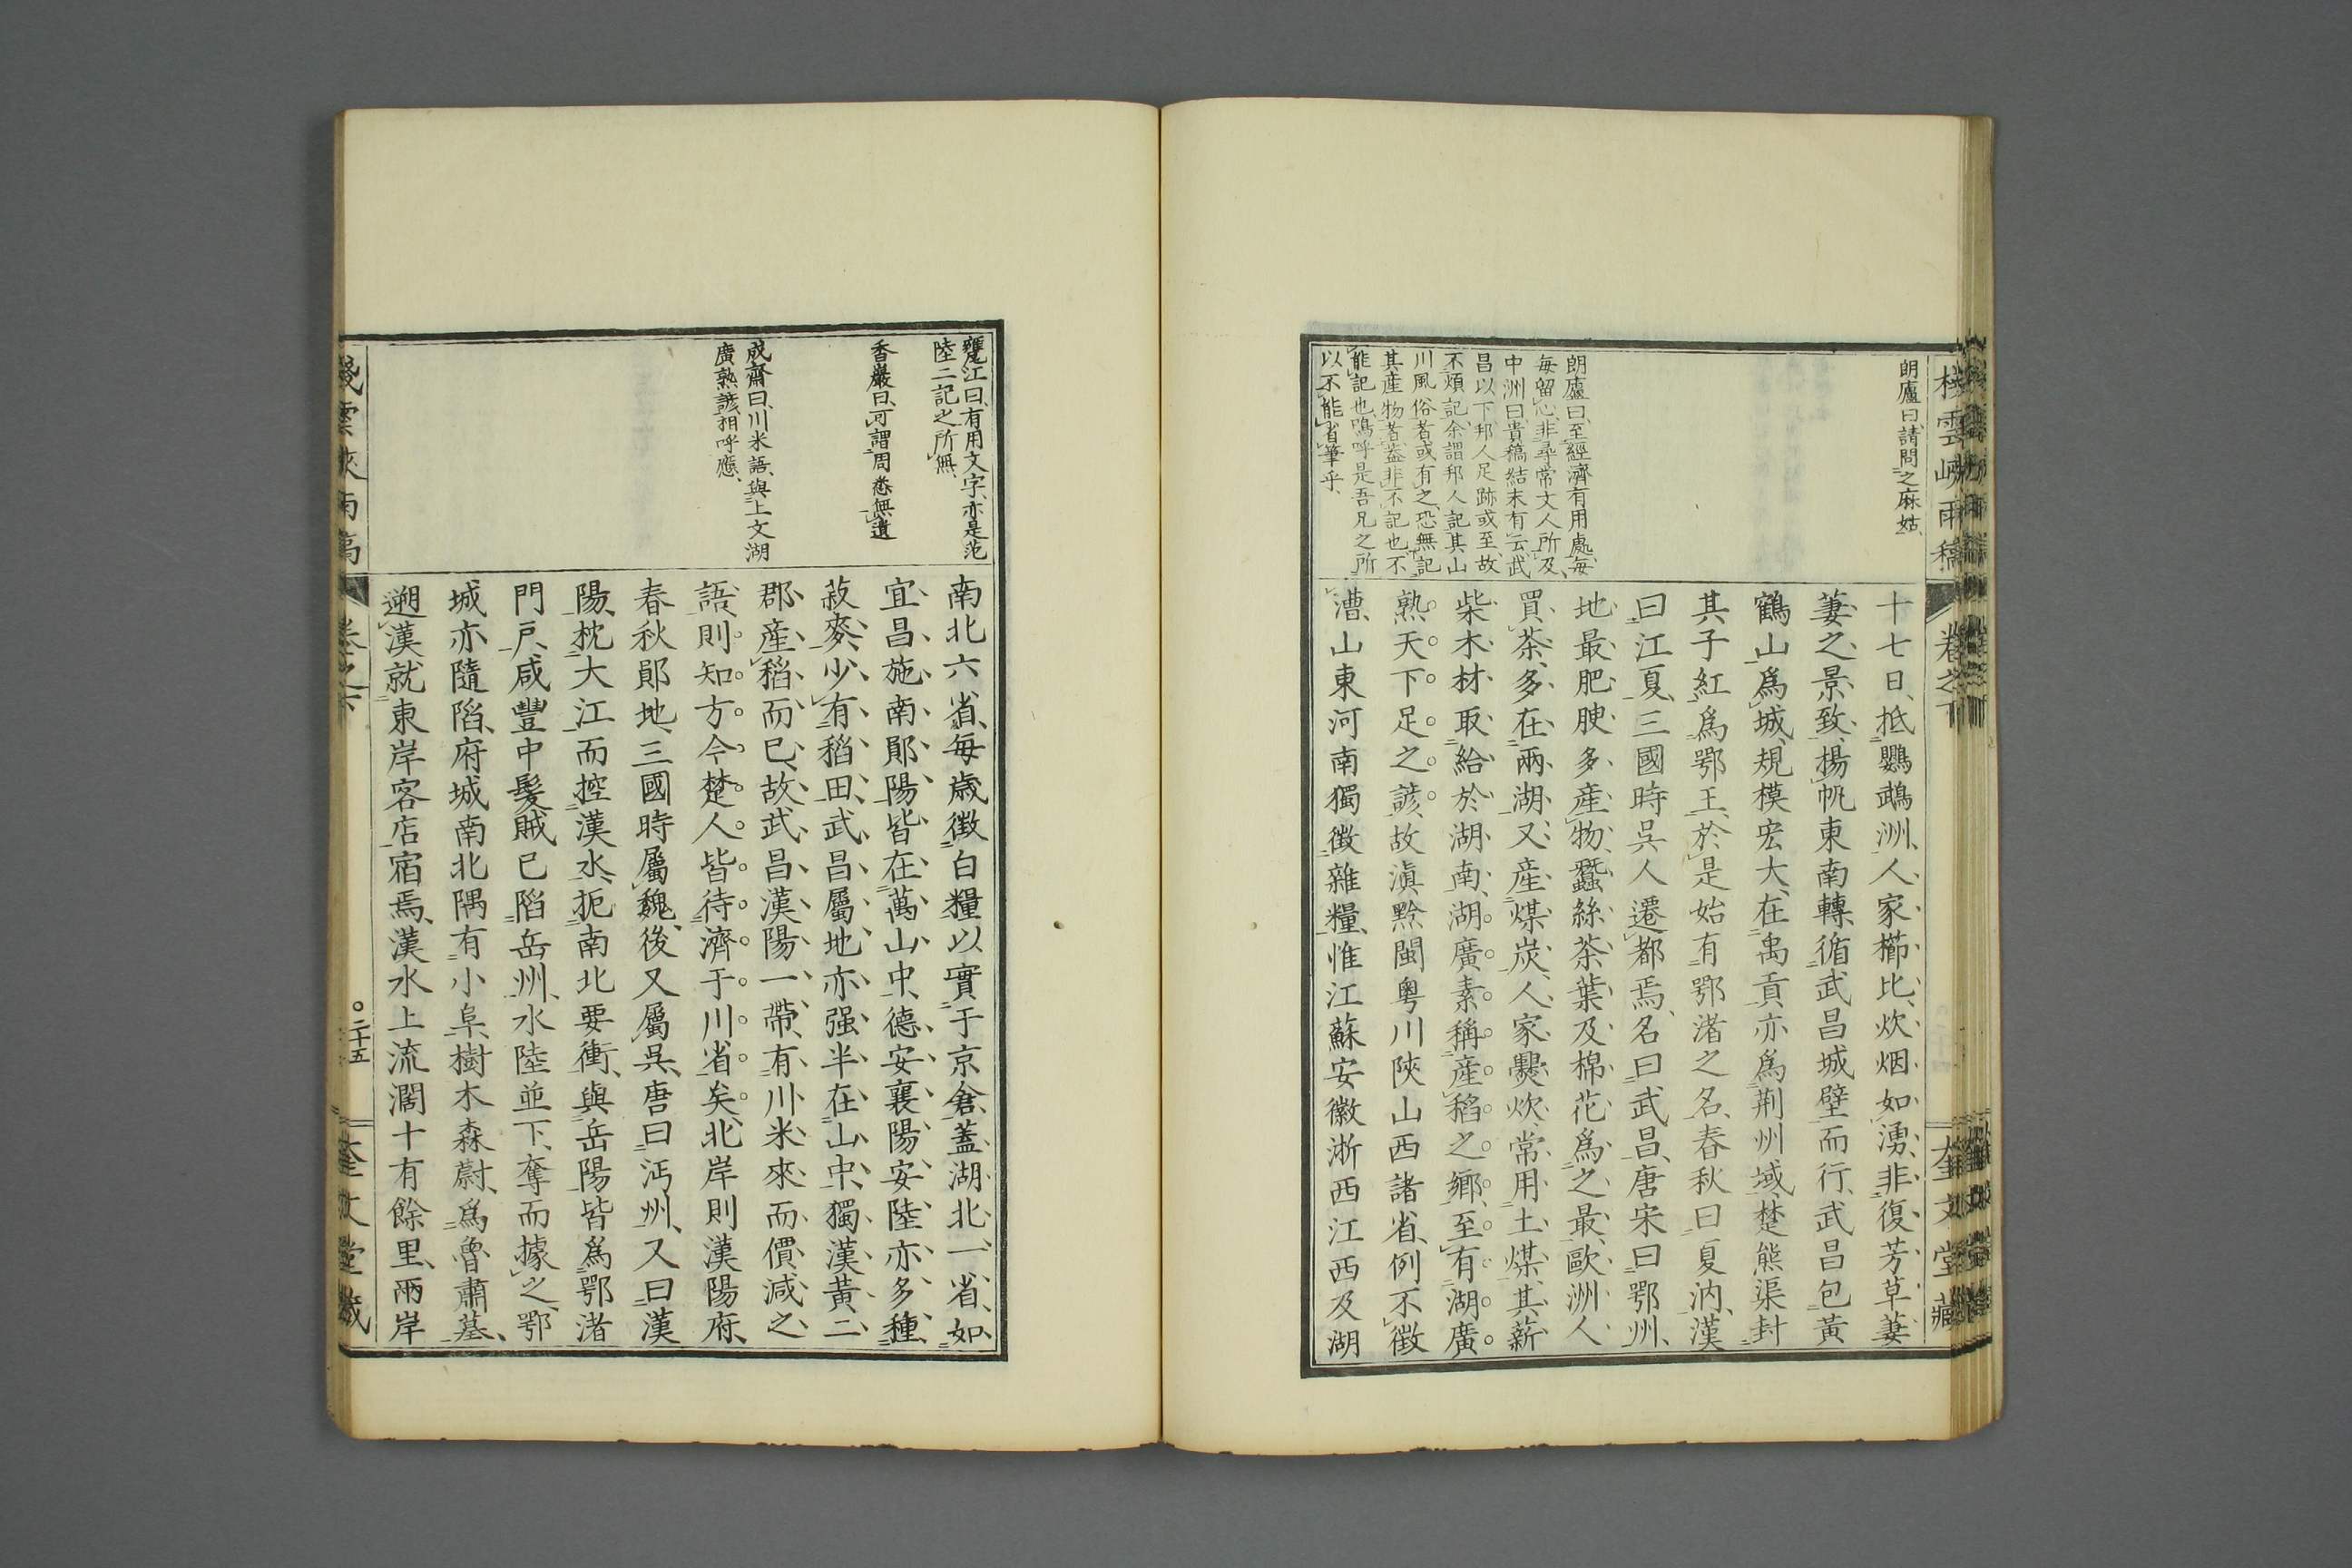 棧雲峽雨稿
卷之下
奎文堂藏
朗廬曰、請問之麻姑、
朗廬曰、至經濟有用處、每
每留心、非尋常文人所及、
中洲曰、貴稿結末有云、武
昌以下、邦人足跡或至、故
不煩記、余謂邦人記其山
川風俗者或有之、恐無記
其產物者、蓋非不記也、不
能記也、嗚呼是吾兄之所
以不能省筆乎、
十七日、抵鸚鵡洲、人家櫛比、炊烟如湧、非復芳草萋
萋之景致、揚帆東南轉、循武昌城壁而行、武昌包黃
鶴山爲城、規模宏大、在禹貢、亦爲荆州域、楚熊渠封
其子紅爲鄂王、於是始有鄂渚之名、春秋曰夏汭、漢
曰江夏、三國時吳人遷都焉、名曰武昌、唐宋曰鄂州、
地最肥腴、多產物、蠶絲茶葉及棉花爲之最、歐洲人
買茶、多在兩湖、又產煤炭、人家爨炊、常用土煤、其薪
柴木材、取給於湖南、湖廣素稱產稻之鄉、至有湖廣
熟天下足之諺、故滇黔閩粵川陝山西諸省、例不徵
漕、山東河南獨徵雜糧、惟江蘇安徽浙西江西及湖
甕江曰、有用文字、亦是范
陸二記之所無、
香巖曰、可謂周悉無遺
成齋曰、川米語、與上文湖
廣熟諺、相呼應、
南北六省、每歲徵白糧以實于京倉、蓋湖北一省、如
宜昌施南鄖陽、皆在萬山中、德安襄陽安陸亦多種
菽麥、少有稻田、武昌屬地亦强半在山中、獨漢黃二
郡、產稻而已、故武昌漢陽一帶、有川米來而價減之
語、則知方今楚人皆待濟于川省矣、北岸則漢陽府、
春秋鄖地、三國時屬魏、後又屬吳、唐曰沔州、又曰漢
陽、枕大江而控漢水、扼南北要衝、與岳陽皆爲鄂渚
門戶、咸豐中髮賊已陷岳州、水陸並下、奪而據之、鄂
城亦隨陷、府城南北隅有小阜、樹木森蔚、爲魯肅墓、
遡漢就東岸客店宿焉、漢水上流濶十有餘里、兩岸
棧雲峽雨稿
卷之下
○二十五
奎文堂藏